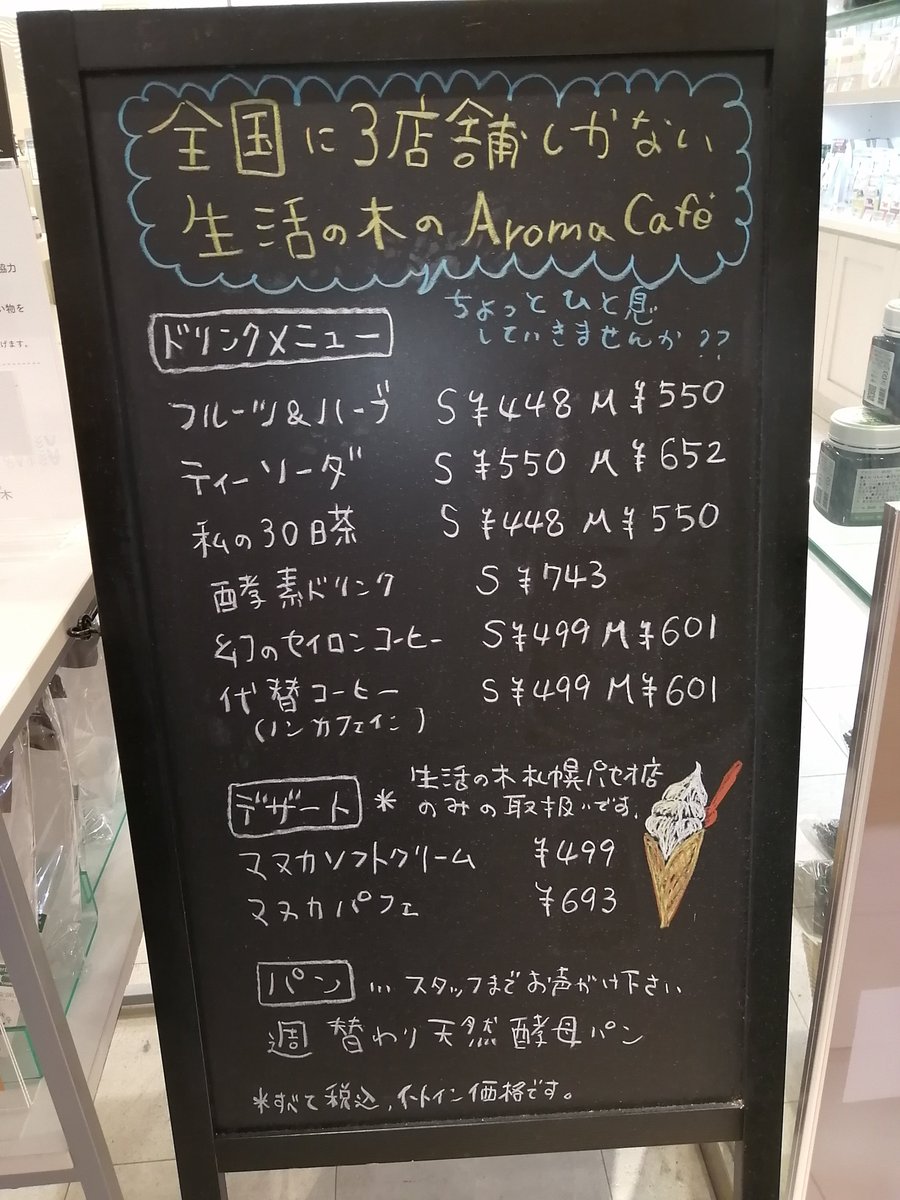 全国に3店舗しかない
生活の木のAroma Café
ちょっとひと息
していきませんか??
ドリンクメニュー
フルーツ&ハーブ S¥448 M¥550
ティーソーダ S¥550 M¥652
私の30日茶 S¥448 M¥550
酵素ドリンク S¥743
幻のセイロンコーヒー S¥499 M¥601
代替コーヒー S¥499 M¥601
(ノンカフェイン)
デザート *生活の木札幌パセオ店
のみの取扱いです.
マヌカソフトクリーム ¥499
マヌカパフェ ¥693
パン … スタッフまでお声がけ下さい
週替わり天然酵母パン
*すべて税込,イートイン価格です。
協力
い物を
げます。
木